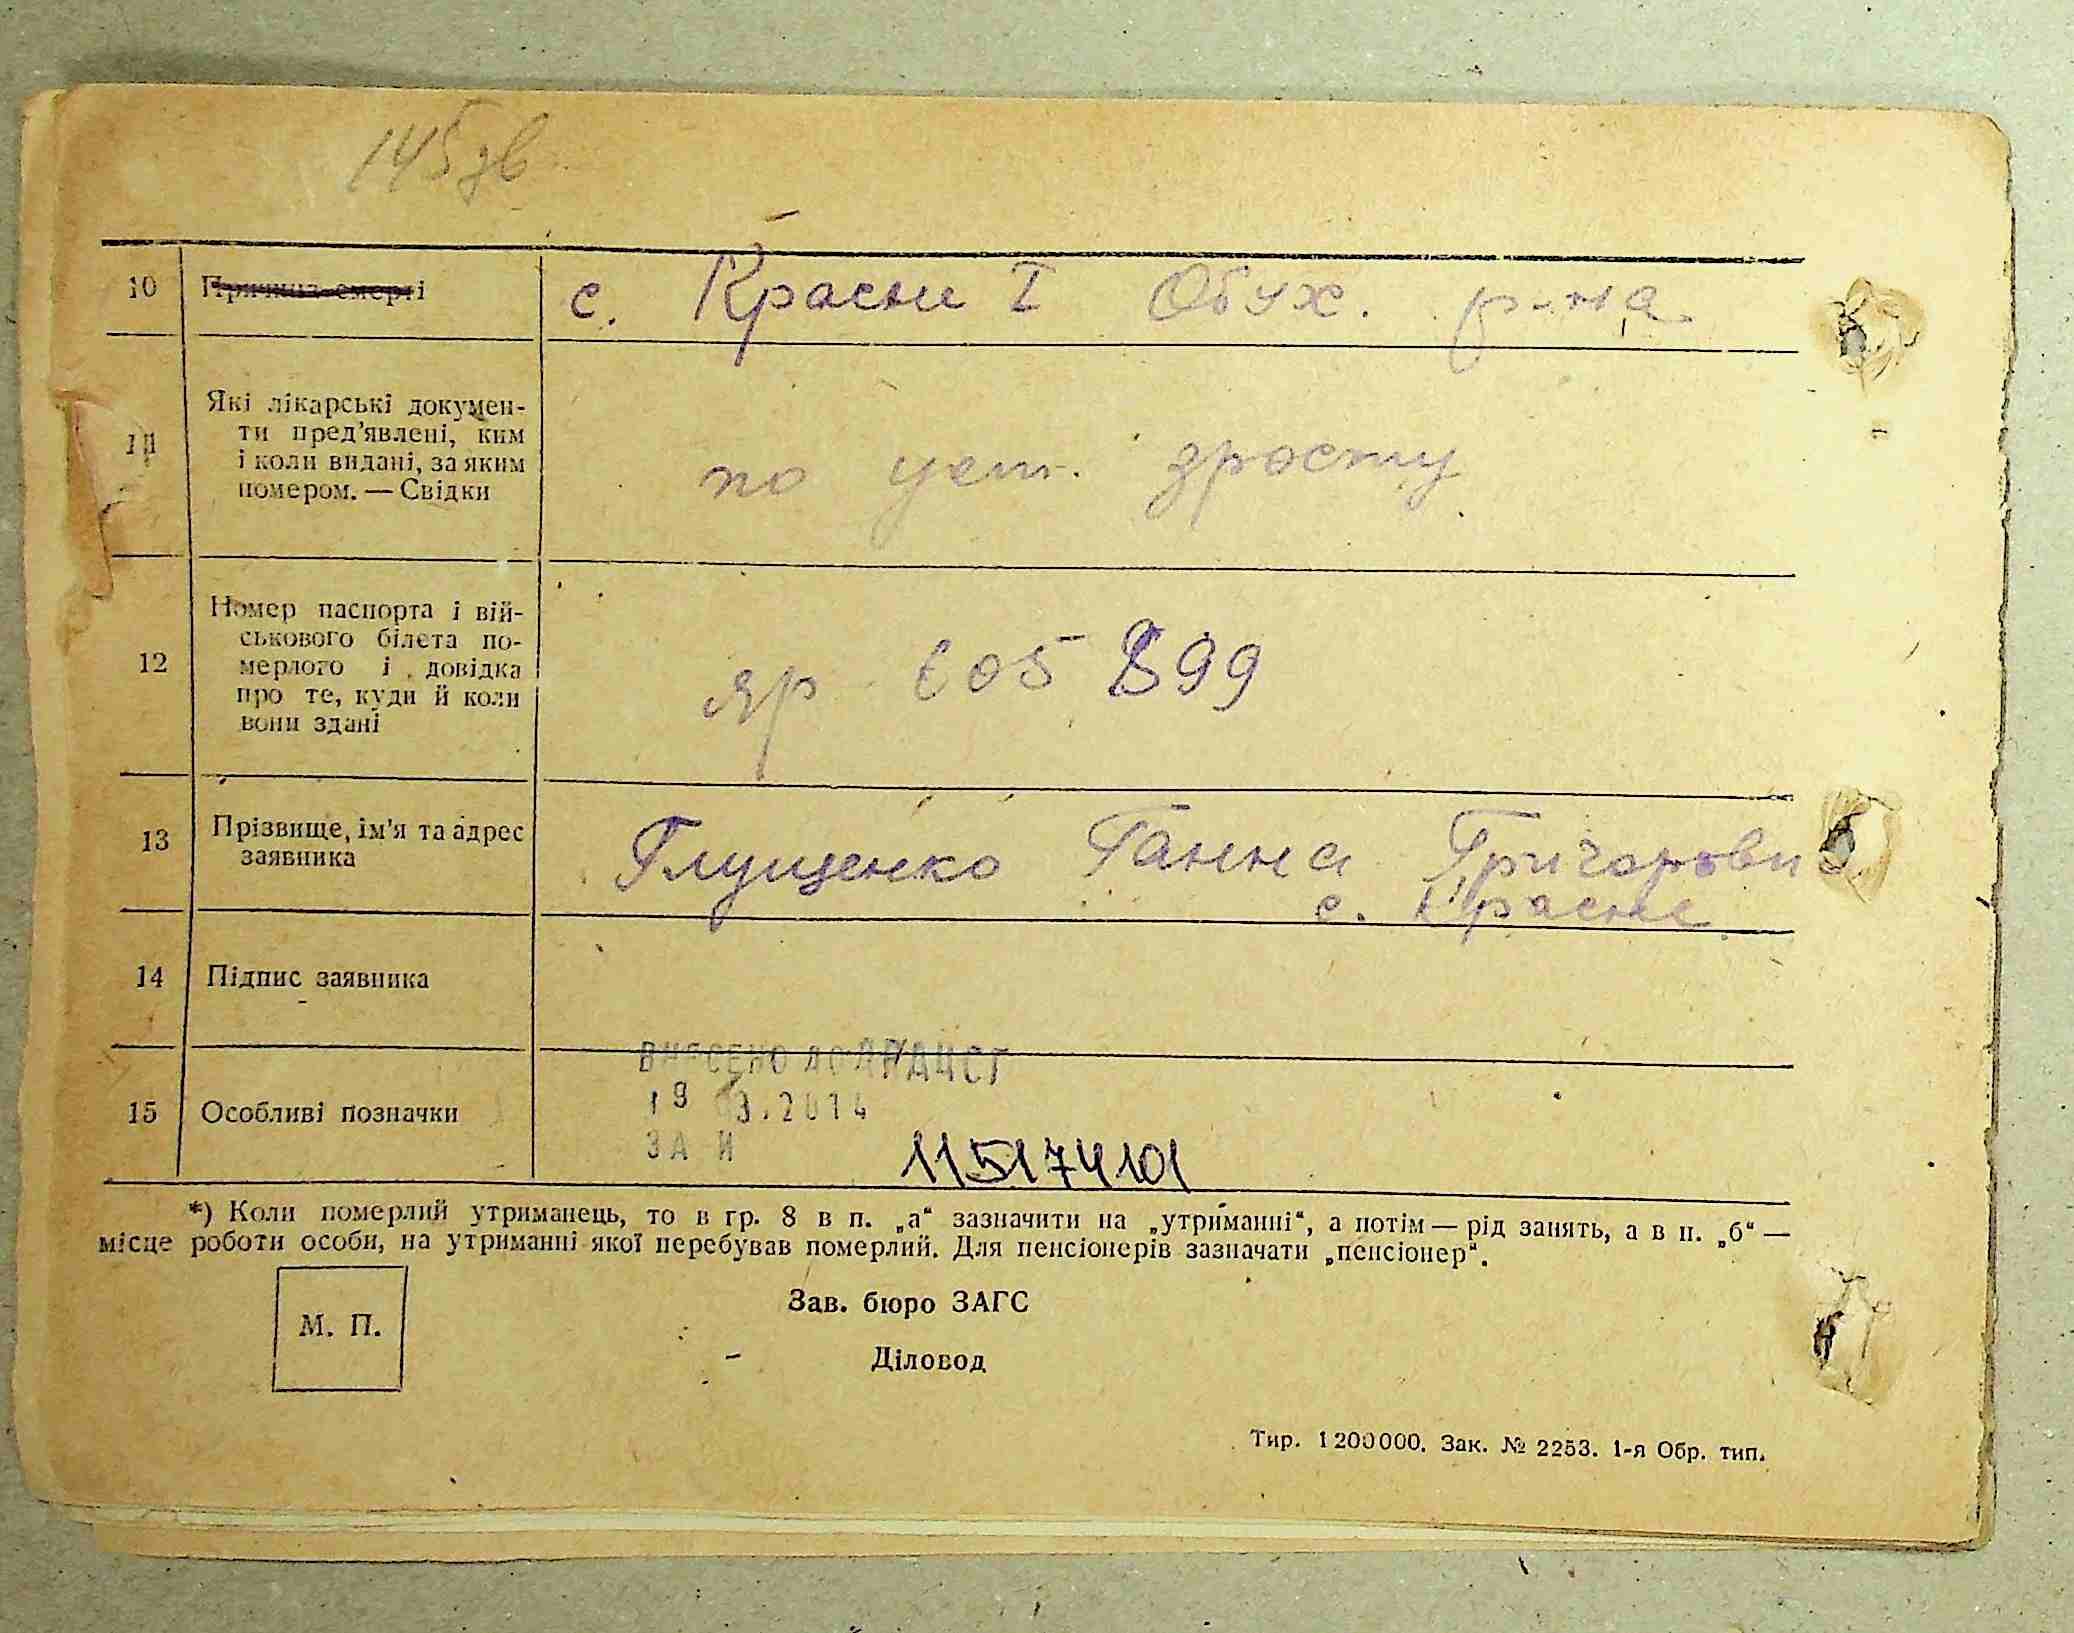 145 зв
10 Причина смерті с. Красни I Обух. р-на
11 Які лікарські докумен-
ти пред'явлені, ким
і коли видані, за яким
номером. — Свідки
по уст.
12 Номер паспорта і вій-
ськового білета по-
мерлого і довідка
про те, куди й коли
вони здані
яр 605 899
13 Прізвище, ім'я та адрес
заявника
Глущенко Ганна Григоровн
с. Красне
14 Підпис заявника
ВНЕСЕНО ДО ДРАЦСГ
15 Особливі позначки
19 03.2014
ЗА N 115174101
*) Коли померлий утриманець, то в гр. 8 в п. „а“ зазначити на „утриманні“, а потім — рід занять, а в п. „б“ —
місце роботи особи, на утриманні якої перебував померлий. Для пенсіонерів зазначати „пенсіонер“.
Зав. бюро ЗАГС
М. П.
Діловод
Тир. 1200000. Зак. № 2253. 1-я Обр. тип.